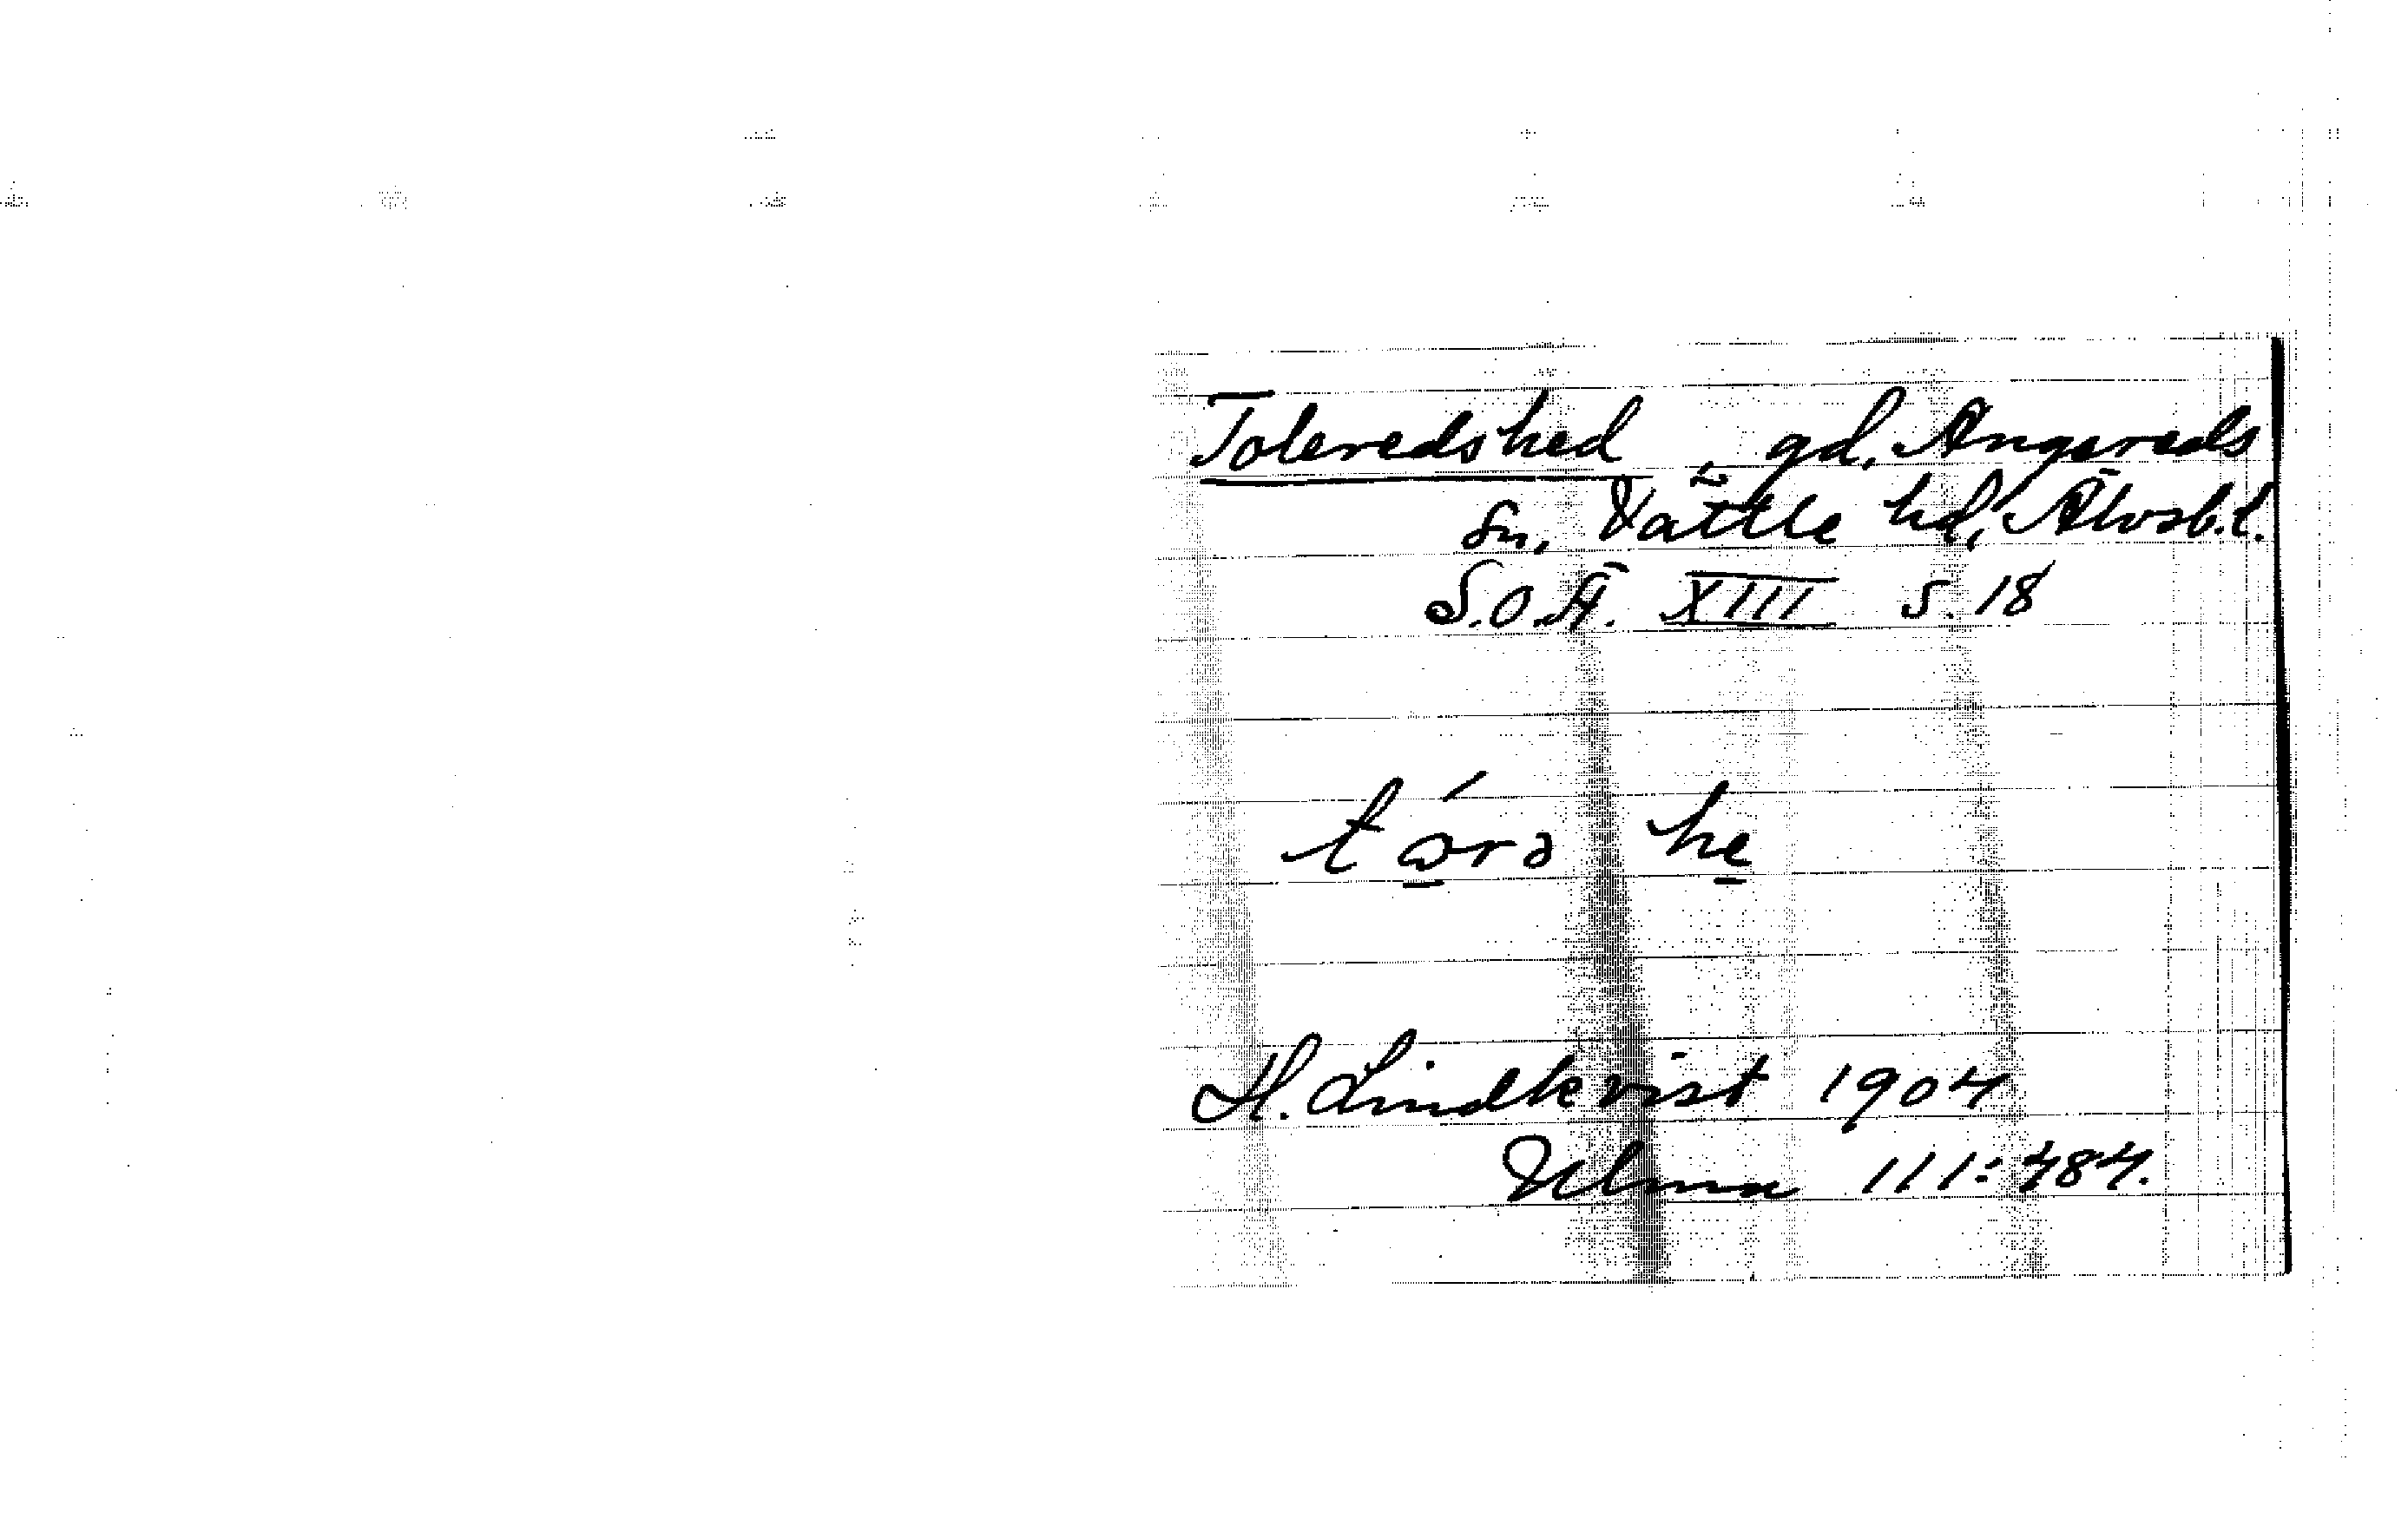 Toleredshed, gd, Angereds
sn, Vättle hd, Älvsb.l.
S.O.Ä. XIII s. 18
H. Lindkvist 1904
Ulma 111:484.